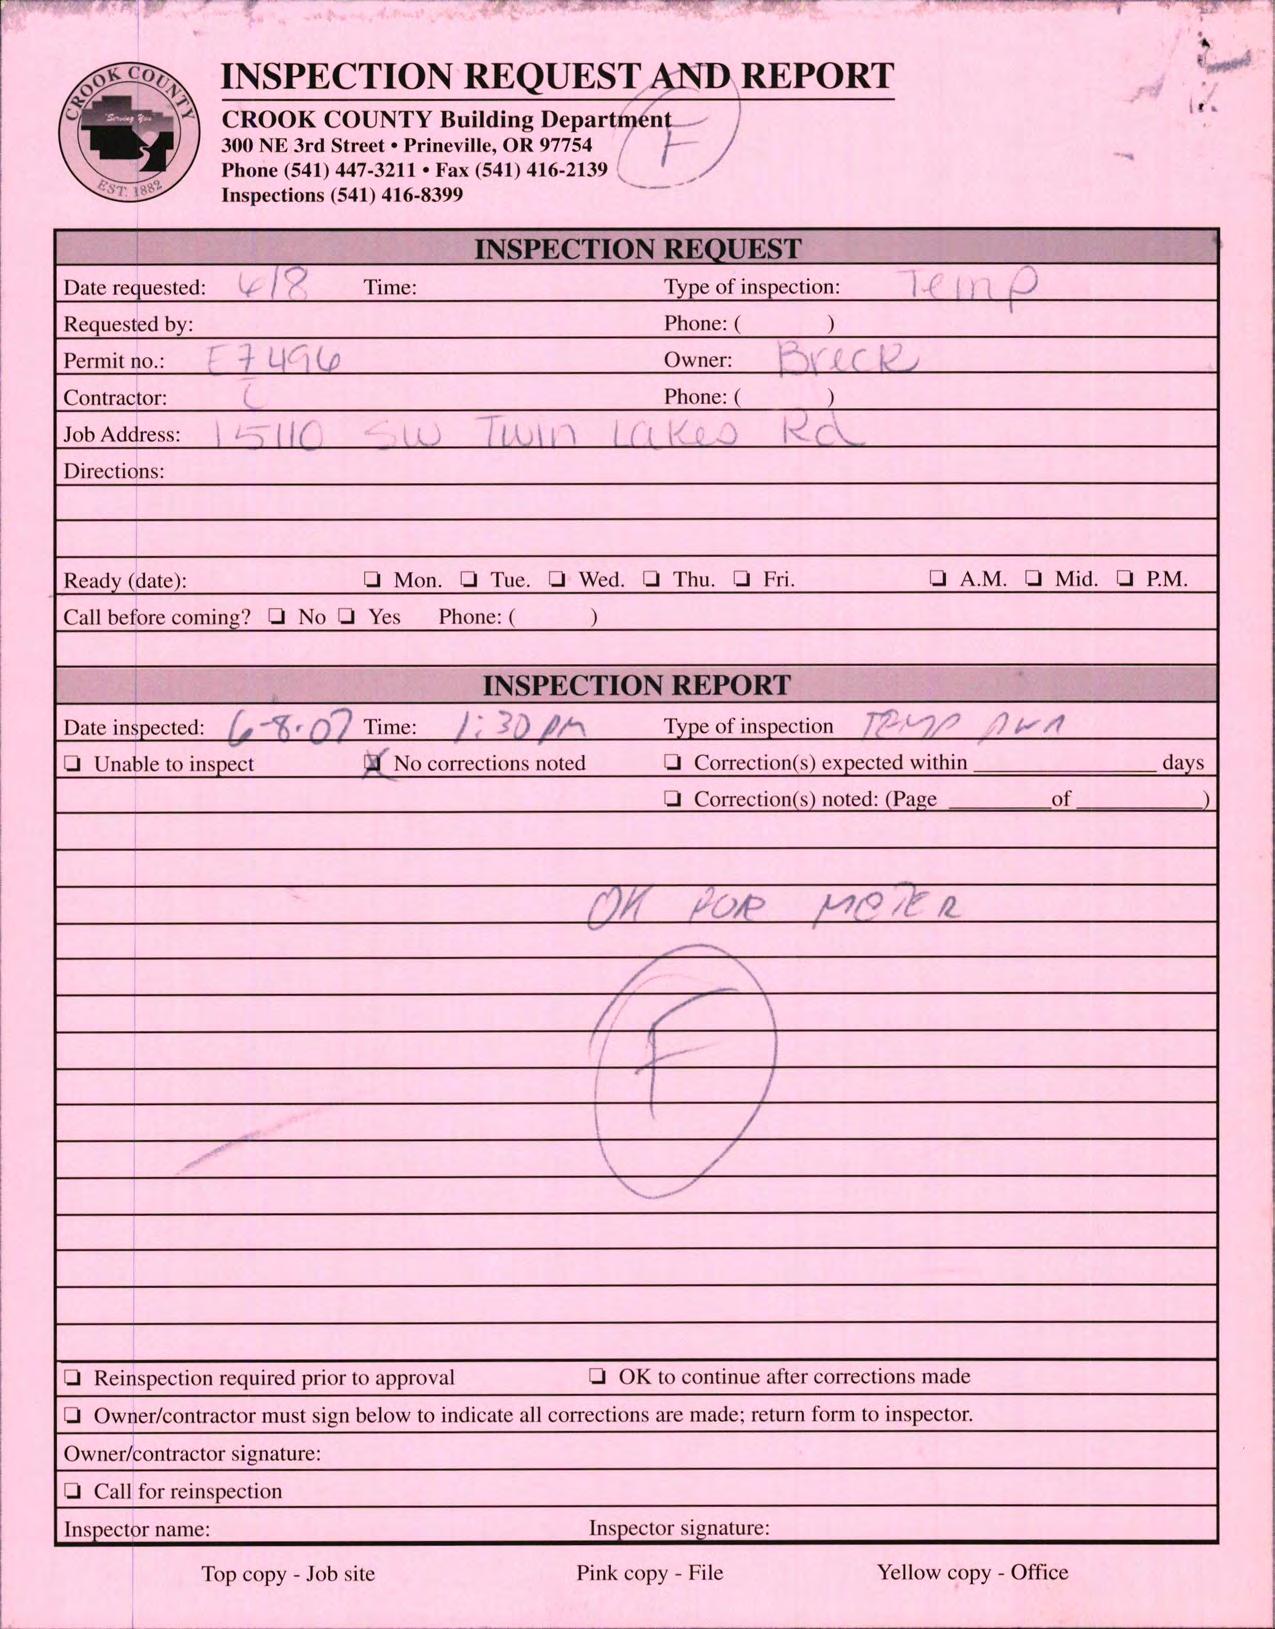 CROOK COUNTY
"Serving You"
EST. 1882
INSPECTION REQUEST AND REPORT
CROOK COUNTY Building Department
F
300 NE 3rd Street • Prineville, OR 97754
Phone (541) 447-3211 • Fax (541) 416-2139
Inspections (541) 416-8399
INSPECTION REQUEST
Date requested: 6/8 Time: Type of inspection: Temp
Requested by: Phone: ( )
Permit no.: E7496 Owner: Breck
Contractor: Phone: ( )
Job Address: 15110 SW Twin Lakes Rd
Directions:
Ready (date): ❏ Mon. ❏ Tue. ❏ Wed. ❏ Thu. ❏ Fri. ❏ A.M. ❏ Mid. ❏ P.M.
Call before coming? ❏ No ❏ Yes Phone: ( )
INSPECTION REPORT
Date inspected: 6-8-07 Time: 1:30 PM Type of inspection TEMP PWR
❏ Unable to inspect ☒ No corrections noted ❏ Correction(s) expected within ________ days
❏ Correction(s) noted: (Page ________ of ________ )
OK FOR METER
F
❏ Reinspection required prior to approval ❏ OK to continue after corrections made
❏ Owner/contractor must sign below to indicate all corrections are made; return form to inspector.
Owner/contractor signature:
❏ Call for reinspection
Inspector name: Inspector signature:
Top copy - Job site Pink copy - File Yellow copy - Office